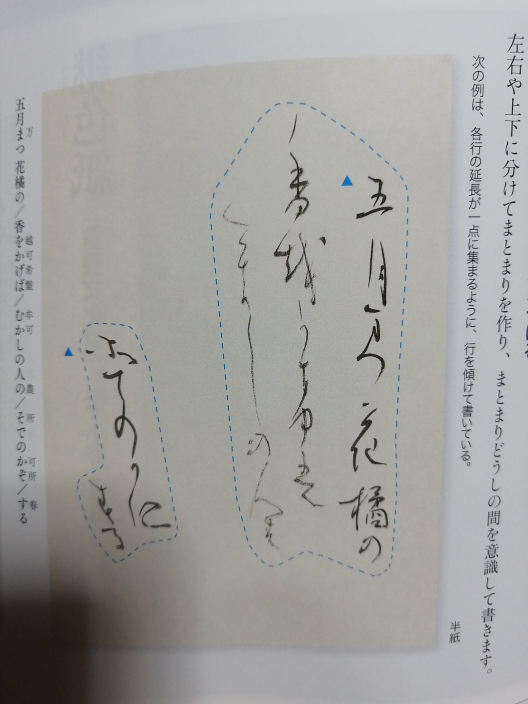 左右や上下に分けてまとまりを作り、まとまりどうしの間を意識して書きます。
次の例は、各行の延長が一点に集まるように、行を傾けて書いている。
半紙
五月万つ花橘の
香越可希盤
牟可しの人農
所ての可所
春る
五月まつ 花橘の/香をかげば/むかしの人の/そでのかぞ/する
万 越可希盤 牟可 農 所 可所 春